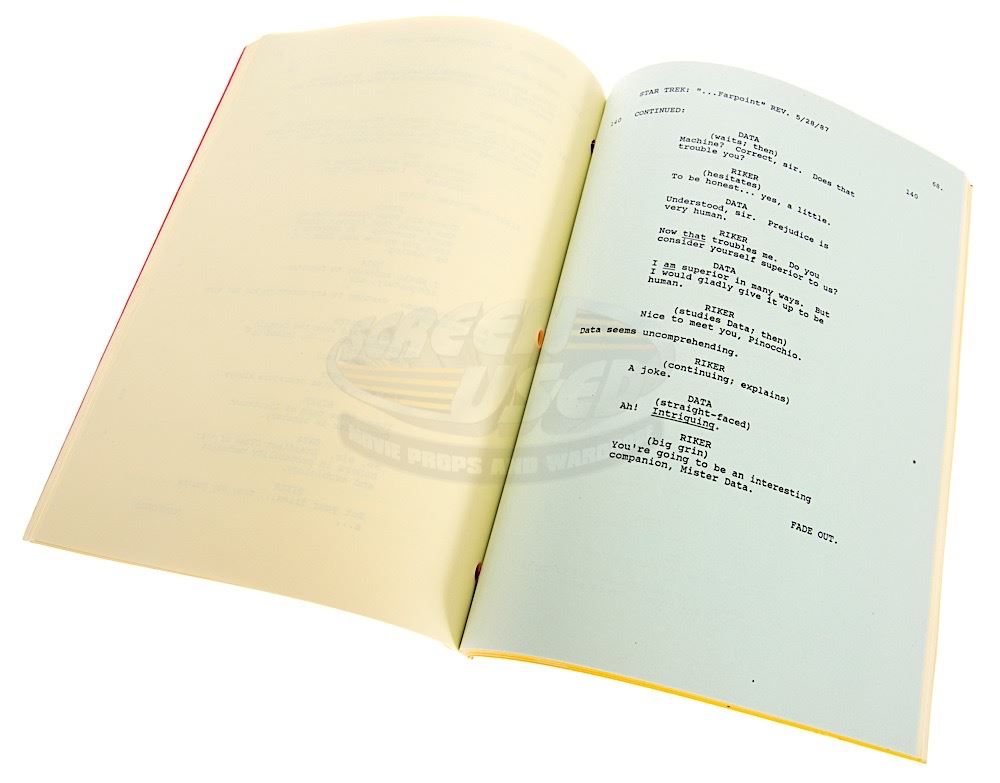 STAR TREK: "...Farpoint" REV. 5/28/87
68.
140 CONTINUED: 140
DATA
(waits; then)
Machine? Correct, sir. Does that
trouble you?
RIKER
(hesitates)
To be honest... yes, a little.
DATA
Understood, sir. Prejudice is
very human.
RIKER
Now that troubles me. Do you
consider yourself superior to us?
DATA
I am superior in many ways. But
I would gladly give it up to be
human.
RIKER
(studies Data; then)
Nice to meet you, Pinocchio.
Data seems uncomprehending.
RIKER
(continuing; explains)
A joke.
DATA
(straight-faced)
Ah! Intriguing.
RIKER
(big grin)
You're going to be an interesting
companion, Mister Data.
FADE OUT.
SCREEN
USED
MOVIE PROPS AND WARDROBE